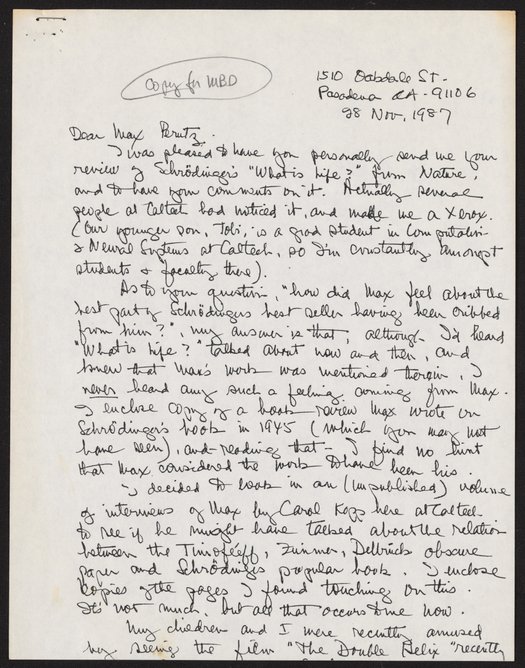 Copy for MBD
1510 Oakdale St.
Pasadena CA - 91106
28 Nov. 1987
Dear Max Perutz,
I was pleased to have you personally send me your
review of Schrödinger's "What is Life?" from Nature,
and to have your comments on it. Actually several
people at Caltech had noticed it, and made me a Xerox.
(Our younger son, Tobi, is a grad student in Computation
& Neural Systems at Caltech, so I'm constantly amongst
students & faculty there).
As to your question, "how did Max feel about the
best part of Schrödingers best seller having been cribbed
from him?", my answer is that, although I'd heard
"What is Life?" talked about now and then, and
knew that Max's work was mentioned therein, I
never heard any such a feeling coming from Max.
I enclose copy of a book review Max wrote on
Schrödinger's book in 1945 (which you may not
have seen), and - reading that - I find no hint
that Max considered the work to have been his.
I decided to look in an (unpublished) volume
of interviews of Max by Carol Kopp here at Caltech
to see if he might have talked about the relation
between the Timoféeff, Zimmer, Dellbrück obscure
paper and Schrödinger's popular book. I enclose
copies of the pages I found touching on this.
It's not much, but all that occurs to me now.
My children and I were recently amused
by seeing the film "The Double Helix" recently